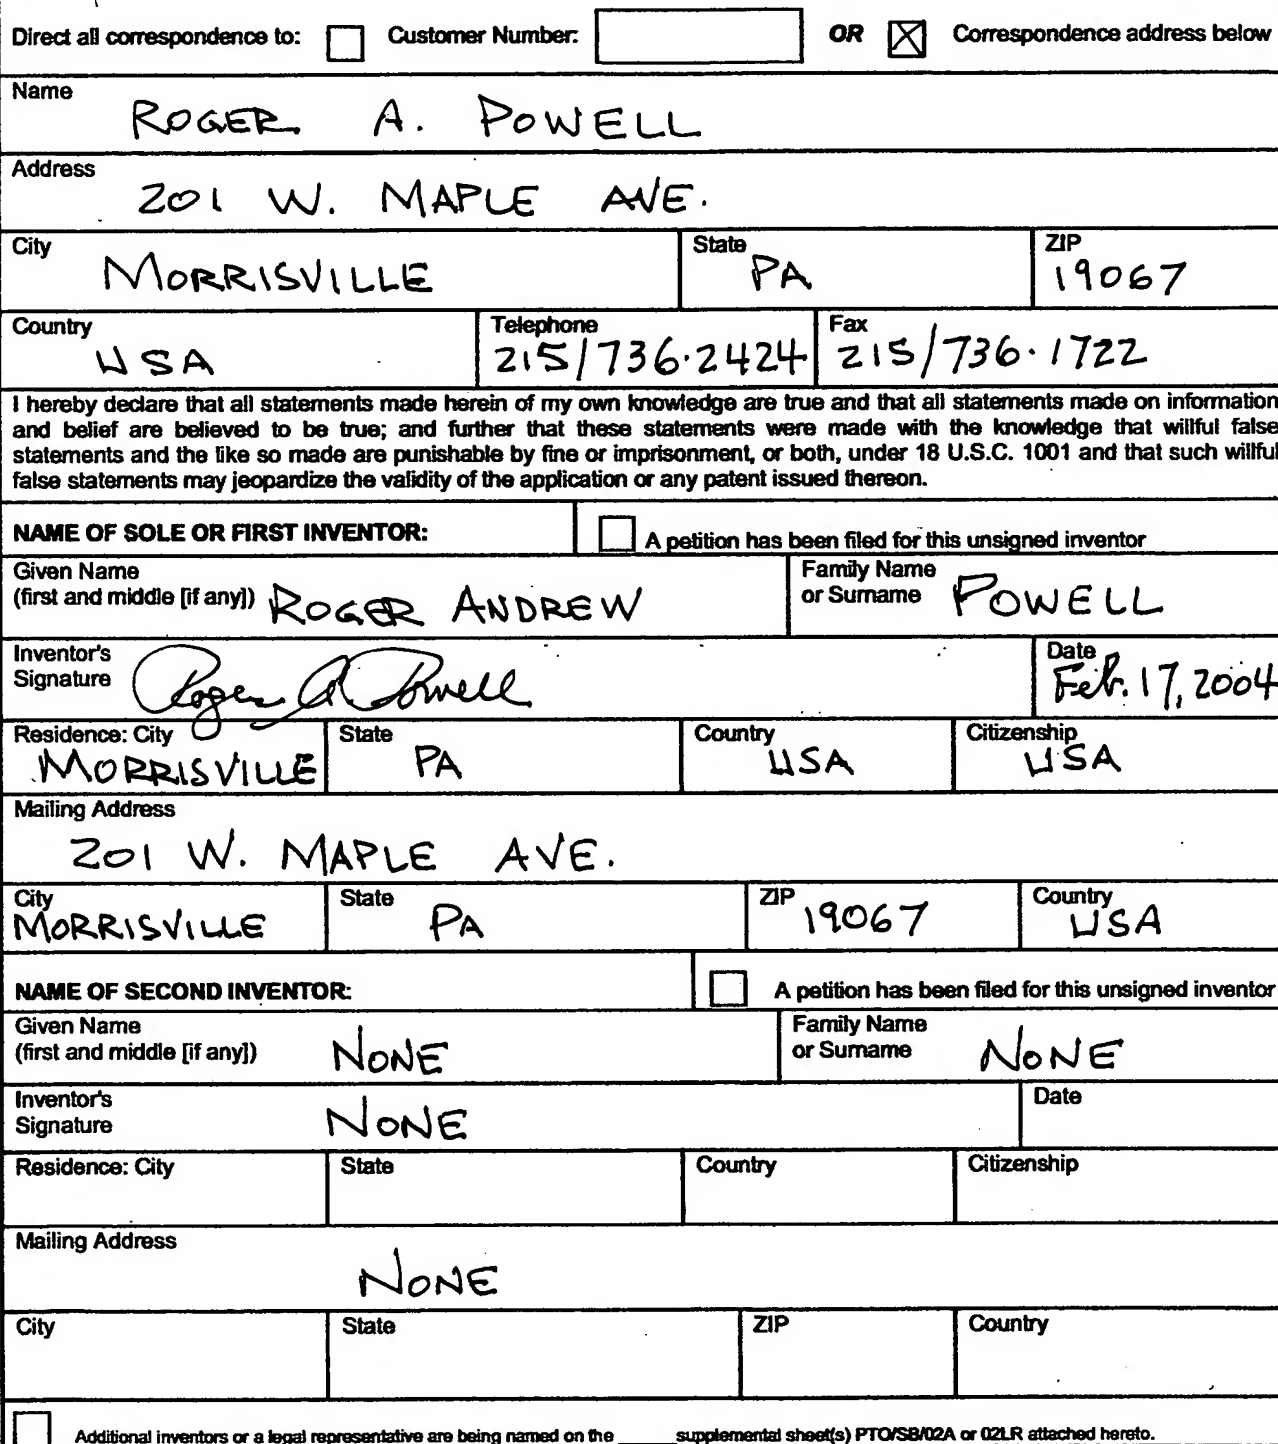 Direct all correspondence to: Customer Number: OR Correspondence address below
Name
ROGER A. POWELL
Address
201 W. MAPLE AVE.
City State ZIP
MORRISVILLE PA 19067
Country Telephone Fax
USA 215/736·2424 215/736·1722
I hereby declare that all statements made herein of my own knowledge are true and that all statements made on information
and belief are believed to be true; and further that these statements were made with the knowledge that willful false
statements and the like so made are punishable by fine or imprisonment, or both, under 18 U.S.C. 1001 and that such willful
false statements may jeopardize the validity of the application or any patent issued thereon.
NAME OF SOLE OR FIRST INVENTOR: A petition has been filed for this unsigned inventor
Given Name
(first and middle [if any]) ROGER ANDREW
Family Name
or Surname POWELL
Inventor's
Signature Roger A Powell
Date
Feb. 17, 2004
Residence: City State Country Citizenship
MORRISVILLE PA USA USA
Mailing Address
201 W. MAPLE AVE.
City State ZIP Country
MORRISVILLE PA 19067 USA
NAME OF SECOND INVENTOR: A petition has been filed for this unsigned inventor
Given Name
(first and middle [if any]) NONE
Family Name
or Surname NONE
Inventor's
Signature NONE
Date
Residence: City State Country Citizenship
Mailing Address
NONE
City State ZIP Country
Additional inventors or a legal representative are being named on the _____ supplemental sheet(s) PTO/SB/02A or 02LR attached hereto.